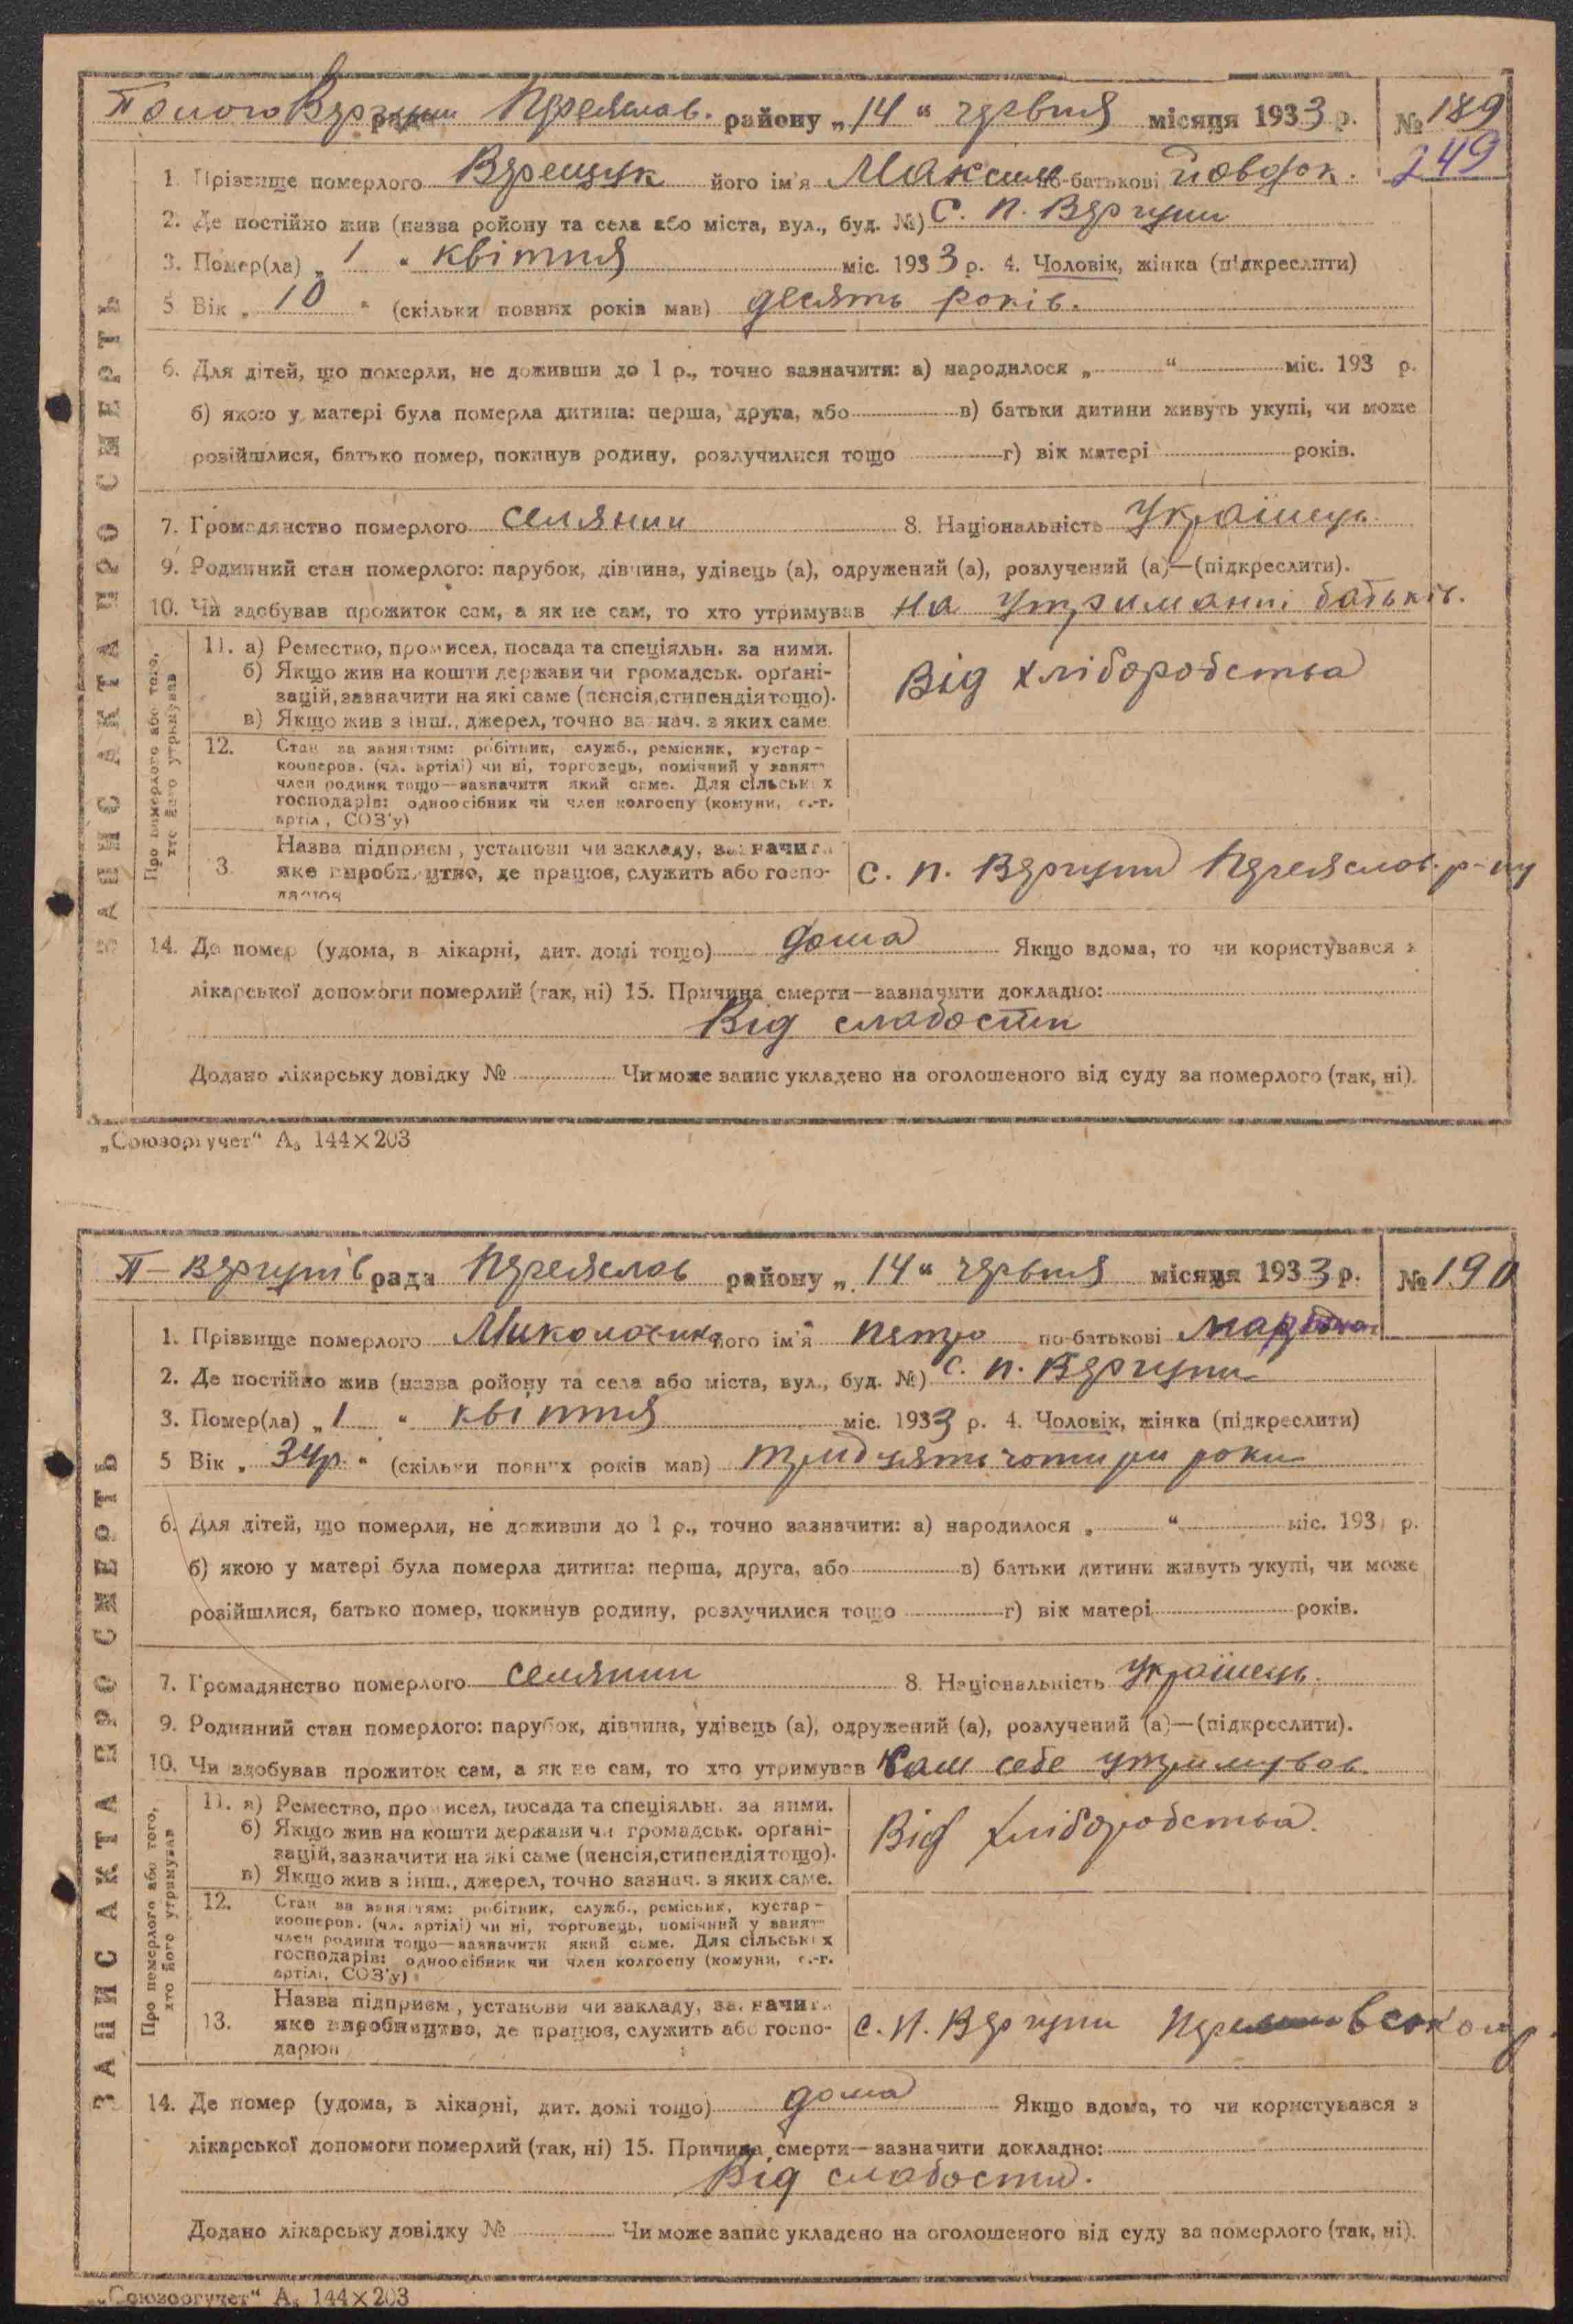 Полого Вергуни Переяслав. району „14“ червня місяця 1933 р. № 189
249
1. Прізвище померлого Верещук його ім'я Максим по-батькові
2. Де постійно жив (назва ройону та села або міста, вул., буд. №) С. П. Вергуни
3. Помер(ла) „1“ квітня міс. 1933 р. 4. Чоловік, жінка (підкреслити)
5 Вік „10“ (скільки повних років мав) десять років.
6. Для дітей, що померли, не доживши до 1 р., точно зазначити: а) народилося „ “ міс. 193 р.
б) якою у матері була померла дитина: перша, друга, або в) батьки дитини живуть укупі, чи може
розійшлися, батько помер, покинув родину, розлучилися тощо г) вік матері років.
7. Громадянство померлого селянин 8. Національність Українець.
9. Родинний стан померлого: парубок, дівчина, удівець (а), одружений (а), розлучений (а)—(підкреслити).
10. Чи здобував прожиток сам, а як не сам, то хто утримував на утриманні батьків.
ЗАПИС АКТА ПРО СМЕРТЬ
Про померлого або того, хто його утримував
11. а) Ремество, промисел, посада та спеціяльн. за ними.
б) Якщо жив на кошти держави чи громадськ. орґані-
зацій, зазначити на які саме (пенсія, стипендія тощо).
в) Якщо жив з інш., джерел, точно зазнач. з яких саме
Від хліборобства
12. Стан за заняттям: робітник, служб., ремісник, кустар-
кооперов. (чл. артілі) чи ні, торговець, помічний у занят-
член родини тощо—зазначити який саме. Для сільських
господарів: одноосібник чи член колгоспу (комуни, с.-г.
артіл, СОЗ'у)
3. Назва підприєм, установи чи закладу, зазначит
яке виробництво, де працює, служить або госпо-
дарює
с. п. Вергуни Переяслав. р-ну
14. Де помер (удома, в лікарні, дит. домі тощо) дома Якщо вдома, то чи користувався з
лікарської допомоги померлий (так, ні) 15. Причина смерти—зазначити докладно:
Від слабости
Додано лікарську довідку № Чи може запис укладено на оголошеного від суду за померлого (так, ні).
„Союзоргучет“ А5 144×203
П-Вергунів рада Переяслав району „14“ червня місяця 1933 р. № 190
1. Прізвище померлого його ім'я Петро по-батькові
2. Де постійно жив (назва ройону та села або міста, вул., буд. №) с. П. Вергуни
3. Помер(ла) „1“ квітня міс. 1933 р. 4. Чоловік, жінка (підкреслити)
5 Вік „34р.“ (скільки повних років мав) тридцять чотири роки
6. Для дітей, що померли, не доживши до 1 р., точно зазначити: а) народилося „ “ міс. 193 р.
б) якою у матері була померла дитина: перша, друга, або в) батьки дитини живуть укупі, чи може
розійшлися, батько помер, покинув родину, розлучилися тощо г) вік матері років.
7. Громадянство померлого селянин 8. Національність Українець.
9. Родинний стан померлого: парубок, дівчина, удівець (а), одружений (а), розлучений (а)—(підкреслити).
10. Чи здобував прожиток сам, а як не сам, то хто утримував Сам себе утримував.
ЗАПИС АКТА ПРО СМЕРТЬ
Про померлого або того, хто його утримував
11. а) Ремество, промисел, посада та спеціяльн. за ними.
б) Якщо жив на кошти держави чи громадськ. орґані-
зацій, зазначити на які саме (пенсія, стипендія тощо).
в) Якщо жив з інш., джерел, точно зазнач. з яких саме.
Від хліборобства.
12. Стан за заняттям: робітник, служб., ремісник, кустар-
кооперов. (чл. артілі) чи ні, торговець, помічний у занят-
член родини тощо—зазначити який саме. Для сільських
господарів: одноосібник чи член колгоспу (комуни, с.-г.
артілі, СОЗ'у)
13. Назва підприєм, установи чи закладу, зазначит
яке виробництво, де працює, служить або госпо-
дарює
с. П. Вергуни
14. Де помер (удома, в лікарні, дит. домі тощо) дома Якщо вдома, то чи користувався з
лікарської допомоги померлий (так, ні) 15. Причина смерти—зазначити докладно:
Від слабости.
Додано лікарську довідку № Чи може запис укладено на оголошеного від суду за померлого (так, ні).
„Союзоргучет“ А5 144×203